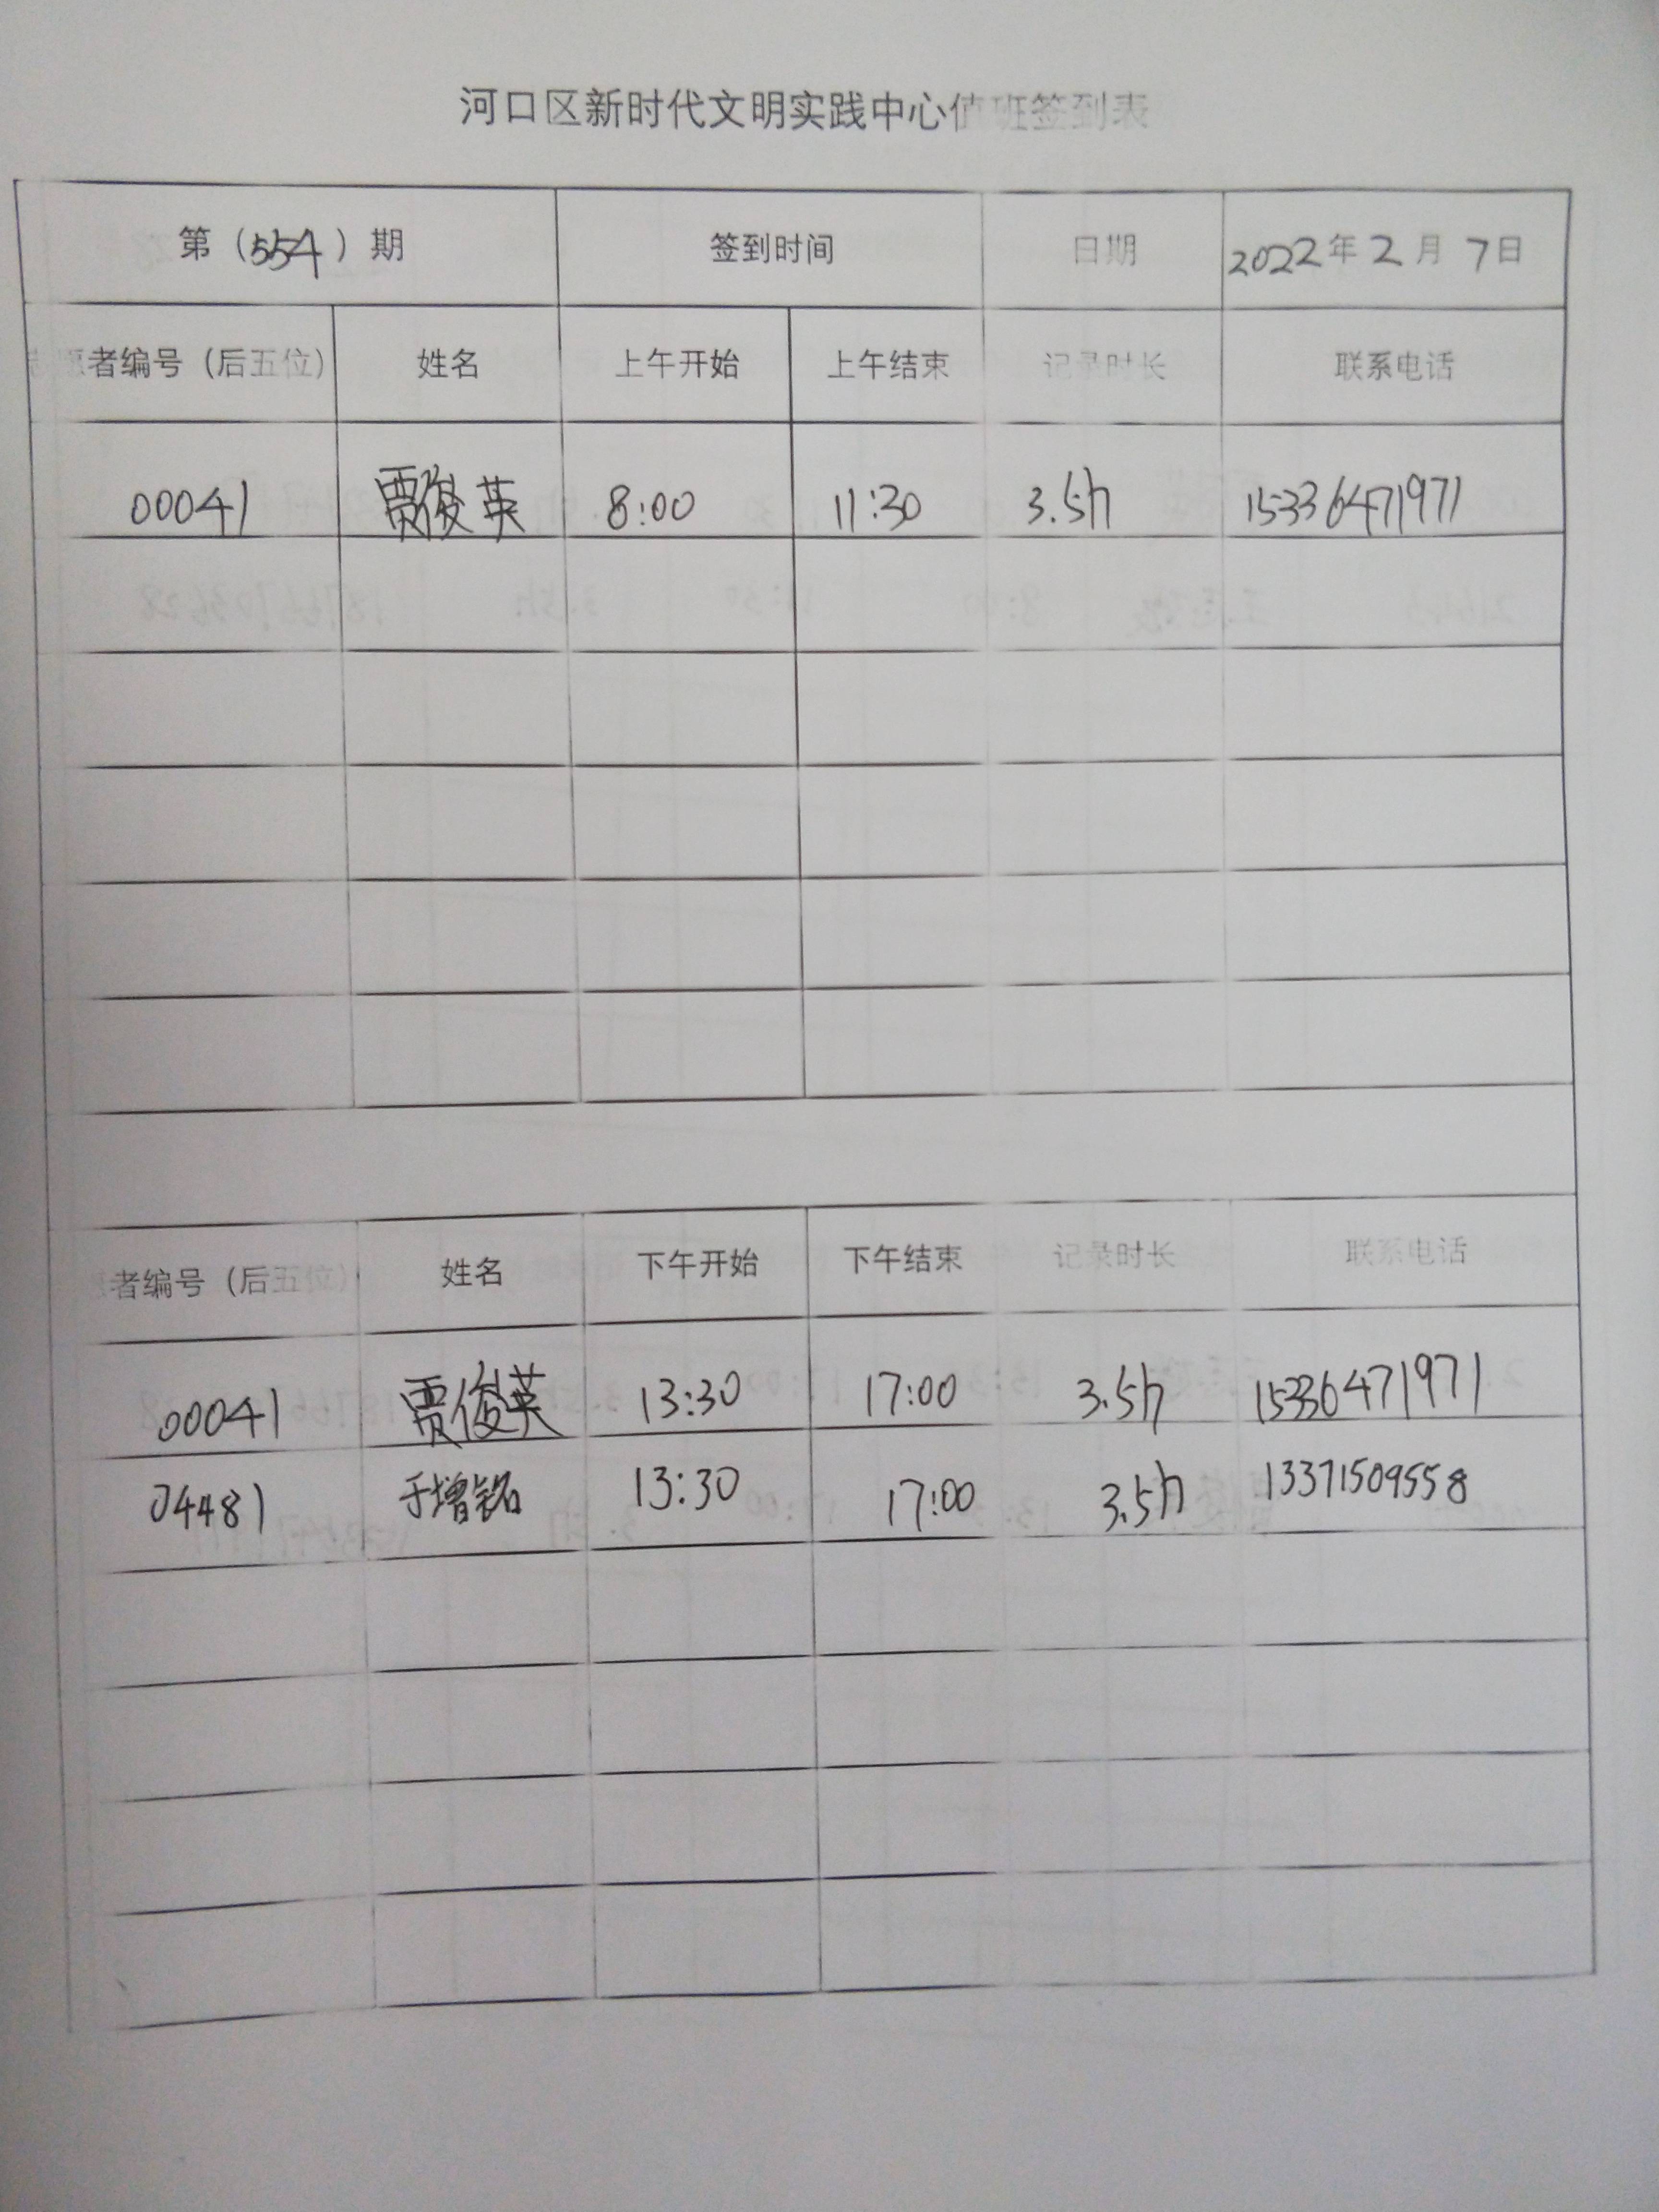 河口区新时代文明实践中心值班签到表
第（554）期 签到时间 日期 2022年2月7日
志愿者编号（后五位） 姓名 上午开始 上午结束 记录时长 联系电话
00041 贾俊英 8:00 11:30 3.5h 15336471971
者编号（后五位） 姓名 下午开始 下午结束 记录时长 联系电话
00041 贾俊英 13:30 17:00 3.5h 15336471971
04481 于增铭 13:30 17:00 3.5h 13371509558